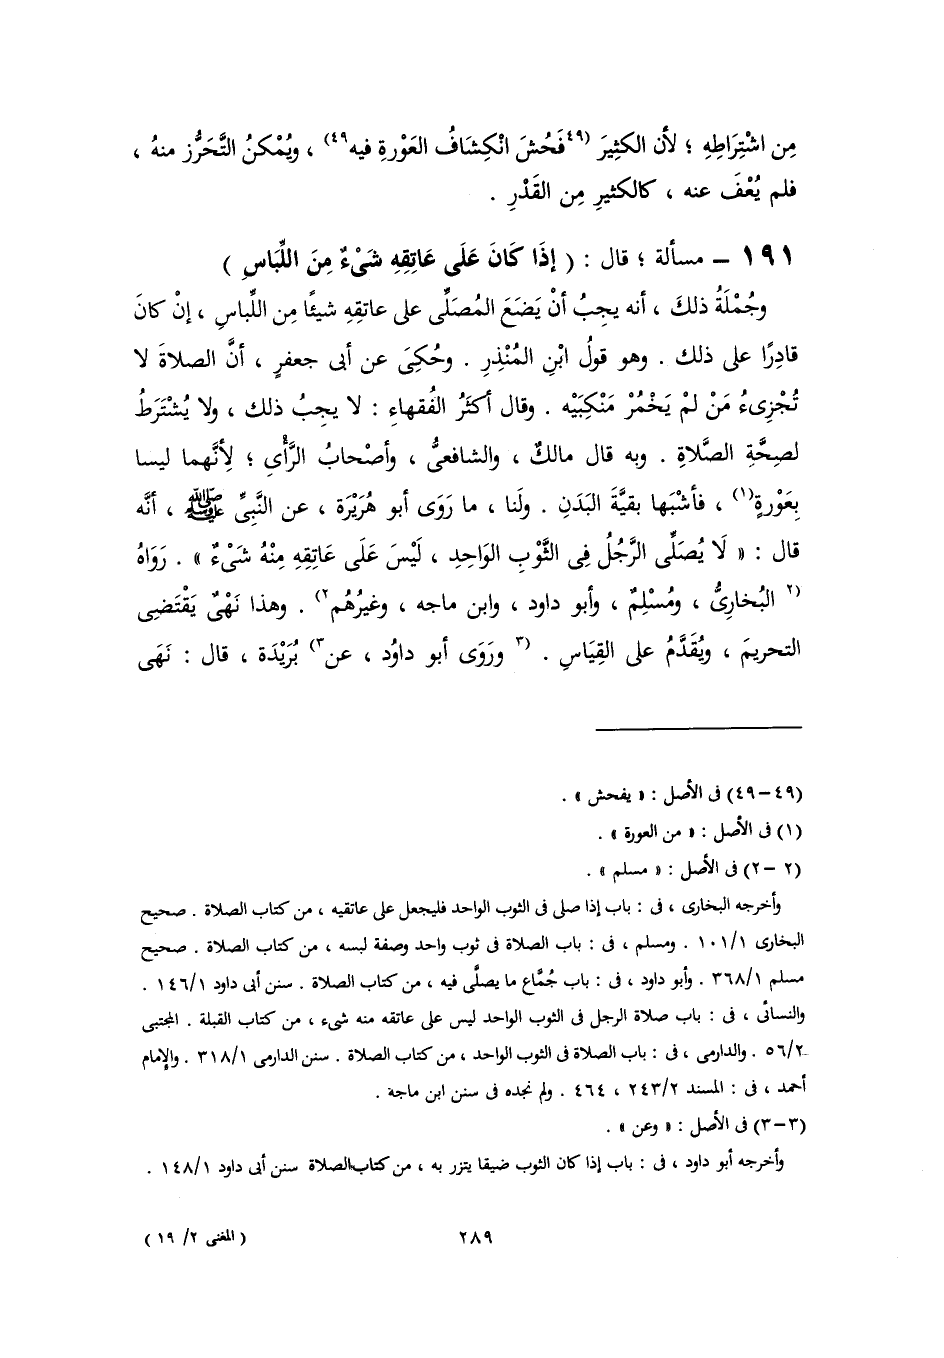 مِن اشْتِرَاطِهِ ؛ لأن الكثِيرَ (٤٩فَحُشَ انْكِشَافُ العَوْرةِ فيه٤٩) ، ويُمْكنُ التَّحَرُّز منهُ ،
فلم يُعْفَ عنه ، كالكثيرِ مِن القَذْرِ .
١٩١ – مسألة ؛ قال : ( إذَا كَانَ عَلَى عَاتِقِهِ شَىْءٌ مِنَ اللِّبَاسِ )
وجُمْلَةُ ذلكَ ، أنه يجِبُ أنْ يَضَعَ المُصَلِّى على عاتقِهِ شيئًا مِن اللِّباسِ ، إنْ كانَ
قادِرًا على ذلك . وهو قولُ ابْنِ المُنْذِرِ . وحُكِىَ عن أبى جعفرٍ ، أنَّ الصلاةَ لا
تُجْزِىءُ مَنْ لمْ يَخْمُرْ مَنْكِبَيْه . وقال أكثَرُ الفُقهاءِ : لا يجِبُ ذلك ، ولا يُشْتَرَطُ
لصِحَّةِ الصَّلاةِ . وبه قال مالكٌ ، والشافعىُّ ، وأصْحابُ الرَّأْىِ ؛ لِأنَّهما ليسا
بِعَوْرةٍ(١) ، فأشْبَها بقيَّةَ البَدَنِ . ولَنا ، ما رَوَى أبو هُرَيْرَة ، عن النَّبِىِّ ﷺ ، أنَّه
قال : « لَا يُصَلِّى الرَّجُلُ فِى الثَّوْبِ الوَاحِدِ ، لَيْسَ عَلَى عَاتِقِهِ مِنْهُ شَىْءٌ » . رَوَاهُ
(٢ البُخارِىُّ ، ومُسْلِمٌ ، وأبو داود ، وابن ماجه ، وغيرُهُم٢) . وهذا نَهْىٌ يَقْتَضِى
التحريمَ ، ويُقَدَّمُ على القِيَاسِ . (٣ ورَوَى أبو داوُد ، عن٣) بُرَيْدَة ، قال : نَهَى
(٤٩–٤٩) فى الأصل : « يفحش » .
(١) فى الأصل : « من العورة » .
(٢ –٢) فى الأصل : « مسلم » .
وأخرجه البخارى ، فى : باب إذا صلى فى الثوب الواحد فليجعل على عاتقيه ، من كتاب الصلاة . صحيح
البخارى ١٠١/١ . ومسلم ، فى : باب الصلاة فى ثوب واحد وصفة لبسه ، من كتاب الصلاة . صحيح
مسلم ٣٦٨/١ . وأبو داود ، فى : باب جُمَّاع ما يصلَّى فيه ، من كتاب الصلاة . سنن أبى داود ١٤٦/١ .
والنسائى ، فى : باب صلاة الرجل فى الثوب الواحد ليس على عاتقه منه شىء ، من كتاب القبلة . المجتبى
٥٦/٢ . والدارمى ، فى : باب الصلاة فى الثوب الواحد ، من كتاب الصلاة . سنن الدارمى ٣١٨/١ . والإمام
أحمد ، فى : المسند ٢٤٣/٢ ، ٤٦٤ . ولم نجده فى سنن ابن ماجة .
(٣–٣) فى الأصل : « وعن » .
وأخرجه أبو داود ، فى : باب إذا كان الثوب ضيقا يتزر به ، من كتاب الصلاة سنن أبى داود ١٤٨/١ .
٢٨٩
( المغنى ٢/ ١٩ )